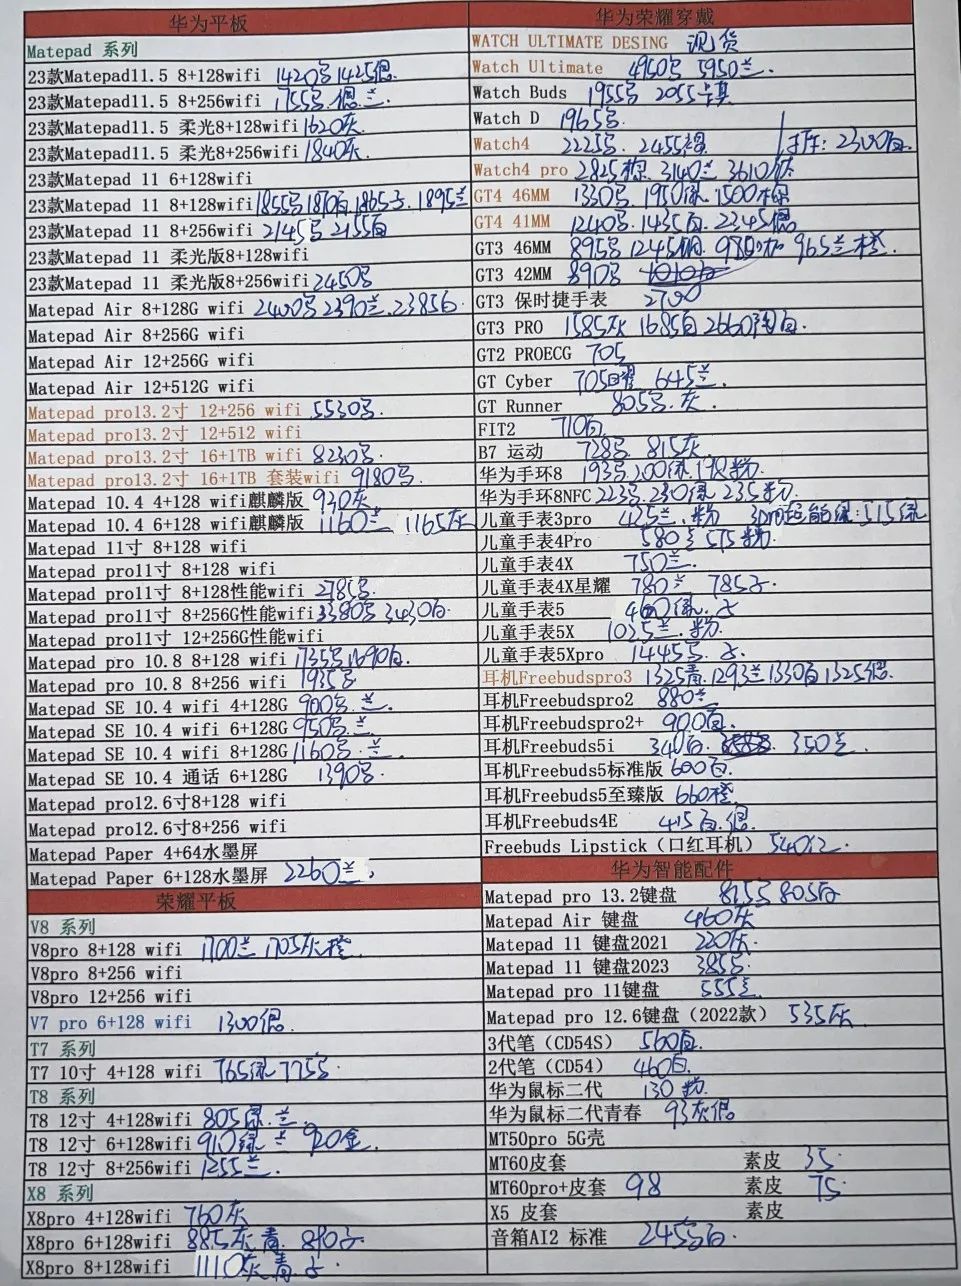 华为平板
Matepad 系列
23款Matepad11.5 8+128wifi 1420 1425
23款Matepad11.5 8+256wifi 1755
23款Matepad11.5 柔光8+128wifi 1620灰
23款Matepad11.5 柔光8+256wifi 1840灰
23款Matepad 11 6+128wifi
23款Matepad 11 8+128wifi 1855 1870白 1865 1895兰
23款Matepad 11 8+256wifi 2145 2155白
23款Matepad 11 柔光版8+128wifi
23款Matepad 11 柔光版8+256wifi 2450
Matepad Air 8+128G wifi 2400 2390兰. 2385白
Matepad Air 8+256G wifi
Matepad Air 12+256G wifi
Matepad Air 12+512G wifi
Matepad pro13.2寸 12+256 wifi 5530
Matepad pro13.2寸 12+512 wifi
Matepad pro13.2寸 16+1TB wifi 8230
Matepad pro13.2寸 16+1TB 套装wifi 9180
Matepad 10.4 4+128 wifi麒麟版 930灰
Matepad 10.4 6+128 wifi麒麟版 1160兰 1165灰
Matepad 11寸 8+128 wifi
Matepad pro11寸 8+128 wifi
Matepad pro11寸 8+128性能wifi 2785
Matepad pro11寸 8+256G性能wifi 3380 3430白
Matepad pro11寸 12+256G性能wifi
Matepad pro 10.8 8+128 wifi 1735 1690白
Matepad pro 10.8 8+256 wifi 1935
Matepad SE 10.4 wifi 4+128G 900 兰
Matepad SE 10.4 wifi 6+128G 950 兰
Matepad SE 10.4 wifi 8+128G 1160 兰
Matepad SE 10.4 通话 6+128G 1390
Matepad pro12.6寸8+128 wifi
Matepad pro12.6寸8+256 wifi
Matepad Paper 4+64水墨屏
Matepad Paper 6+128水墨屏 2260兰
荣耀平板
V8 系列
V8pro 8+128 wifi 1700兰 1705灰橙
V8pro 8+256 wifi
V8pro 12+256 wifi
V7 pro 6+128 wifi 1300
T7 系列
T7 10寸 4+128 wifi 765绿 775
T8 系列
T8 12寸 4+128wifi 805绿.兰
T8 12寸 6+128wifi 910绿 兰 920金
T8 12寸 8+256wifi 1255兰
X8 系列
X8pro 4+128wifi 760灰
X8pro 6+128wifi 885灰 青 890
X8pro 8+128wifi 1110灰 青
华为荣耀穿戴
WATCH ULTIMATE DESING 现货
Watch Ultimate 4950 5950兰.
Watch Buds 1955 2055
Watch D 1965
Watch4 2225 2455 2300白
Watch4 pro 2825棕 3140兰 3610钛
GT4 46MM 1330 1950绿 1500棕
GT4 41MM 1240 1435白 2345
GT3 46MM 895 1245钢 980 965兰橙
GT3 42MM 890
GT3 保时捷手表 2700
GT3 PRO 1585灰 1685白 2660陶白
GT2 PROECG 705
GT Cyber 705曜 645兰
GT Runner 805 灰
FIT2 710白
B7 运动 728 815灰
华为手环8 193 200绿 粉
华为手环8NFC 223 230绿 235粉
儿童手表3pro 425兰.粉 3Pro超能绿:515绿
儿童手表4Pro 580 575粉
儿童手表4X 750兰
儿童手表4X星耀 780兰 785
儿童手表5 460绿
儿童手表5X 1035兰.粉
儿童手表5Xpro 1445
耳机Freebudspro3 1325青 1293兰 1330白 1325
耳机Freebudspro2 880兰
耳机Freebudspro2+ 900白
耳机Freebuds5i 340白 350兰
耳机Freebuds5标准版 600白
耳机Freebuds5至臻版 660橙
耳机Freebuds4E 415白
Freebuds Lipstick（口红耳机） 540红
华为智能配件
Matepad pro 13.2键盘 815 805白
Matepad Air 键盘 460灰
Matepad 11 键盘2021 220灰
Matepad 11 键盘2023 385
Matepad pro 11键盘 555
Matepad pro 12.6键盘（2022款） 535灰
3代笔（CD54S） 560白
2代笔（CD54） 460白
华为鼠标二代 130粉
华为鼠标二代青春 93灰
MT50pro 5G壳
MT60皮套 素皮 35
MT60pro+皮套 98 素皮 75
X5 皮套 素皮
音箱AI2 标准 245 白